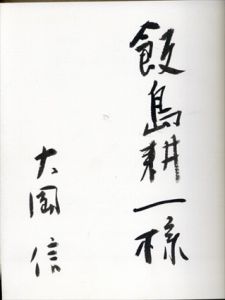 飯島耕一様
大岡信